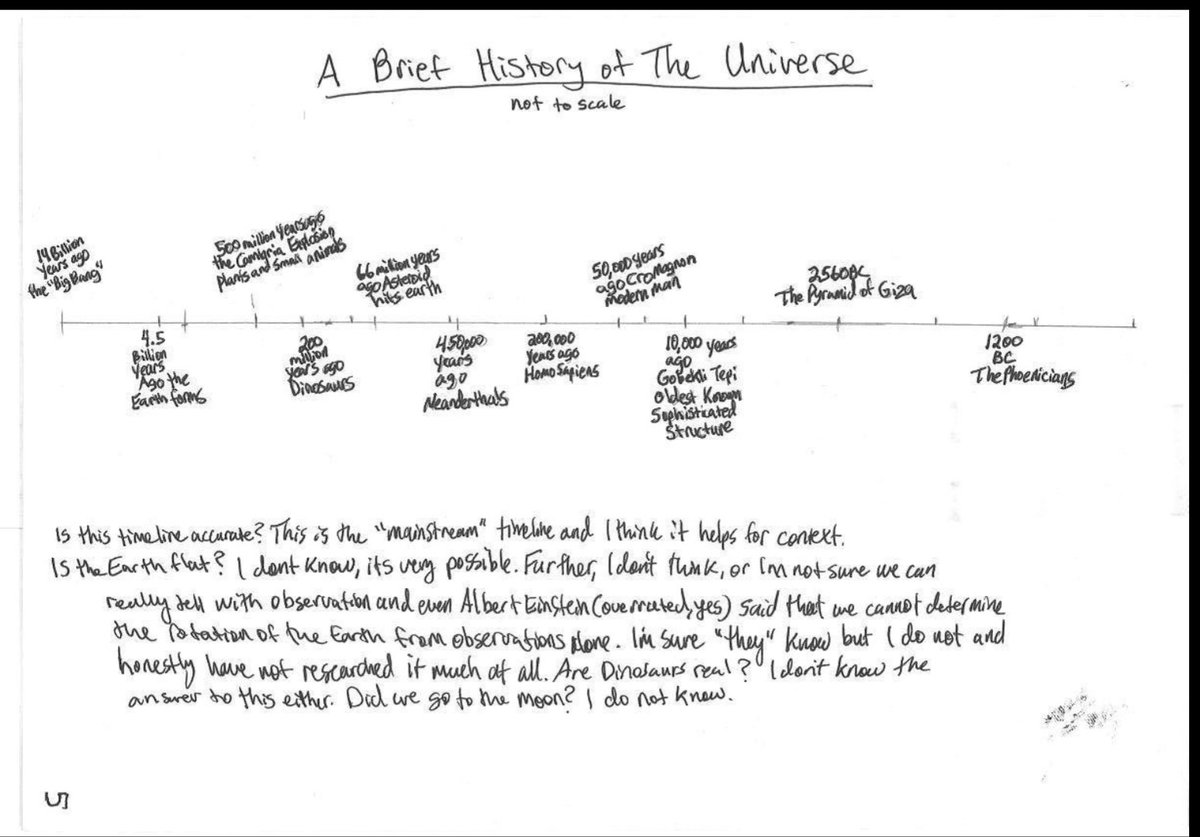 A Brief History of The Universe
not to scale
14 Billion
Years ago
the "Big Bang"
4.5
Billion
Years
Ago the
Earth forms
500 million Years ago
the Camigria Explosion
Plants and Small animals
200
million
years ago
Dinosaurs
66 million years
ago Asteroid
hits earth
450,000
Years
ago
Neanderthals
200,000
Years ago
Homo Sapiens
50,000 years
ago CroMagnon
modern man
10,000 years
ago
Gobekli Tepi
Oldest Known
Sophisticated
Structure
2560BC
The Pyramid of Giza
1200
BC
The Phoenicians
Is this timeline accurate? This is the "mainstream" timeline and I think it helps for context.
Is the Earth flat? I dont know, its very possible. Further, I don't think, or I'm not sure we can
really tell with observation and even Albert Einstein (overrated, yes) said that we cannot determine
the rotation of the Earth from observations alone. I'm sure "they" know but I do not and
honestly have not researched it much at all. Are Dinosaurs real? I don't know the
answer to this either. Did we go to the moon? I do not know.
5